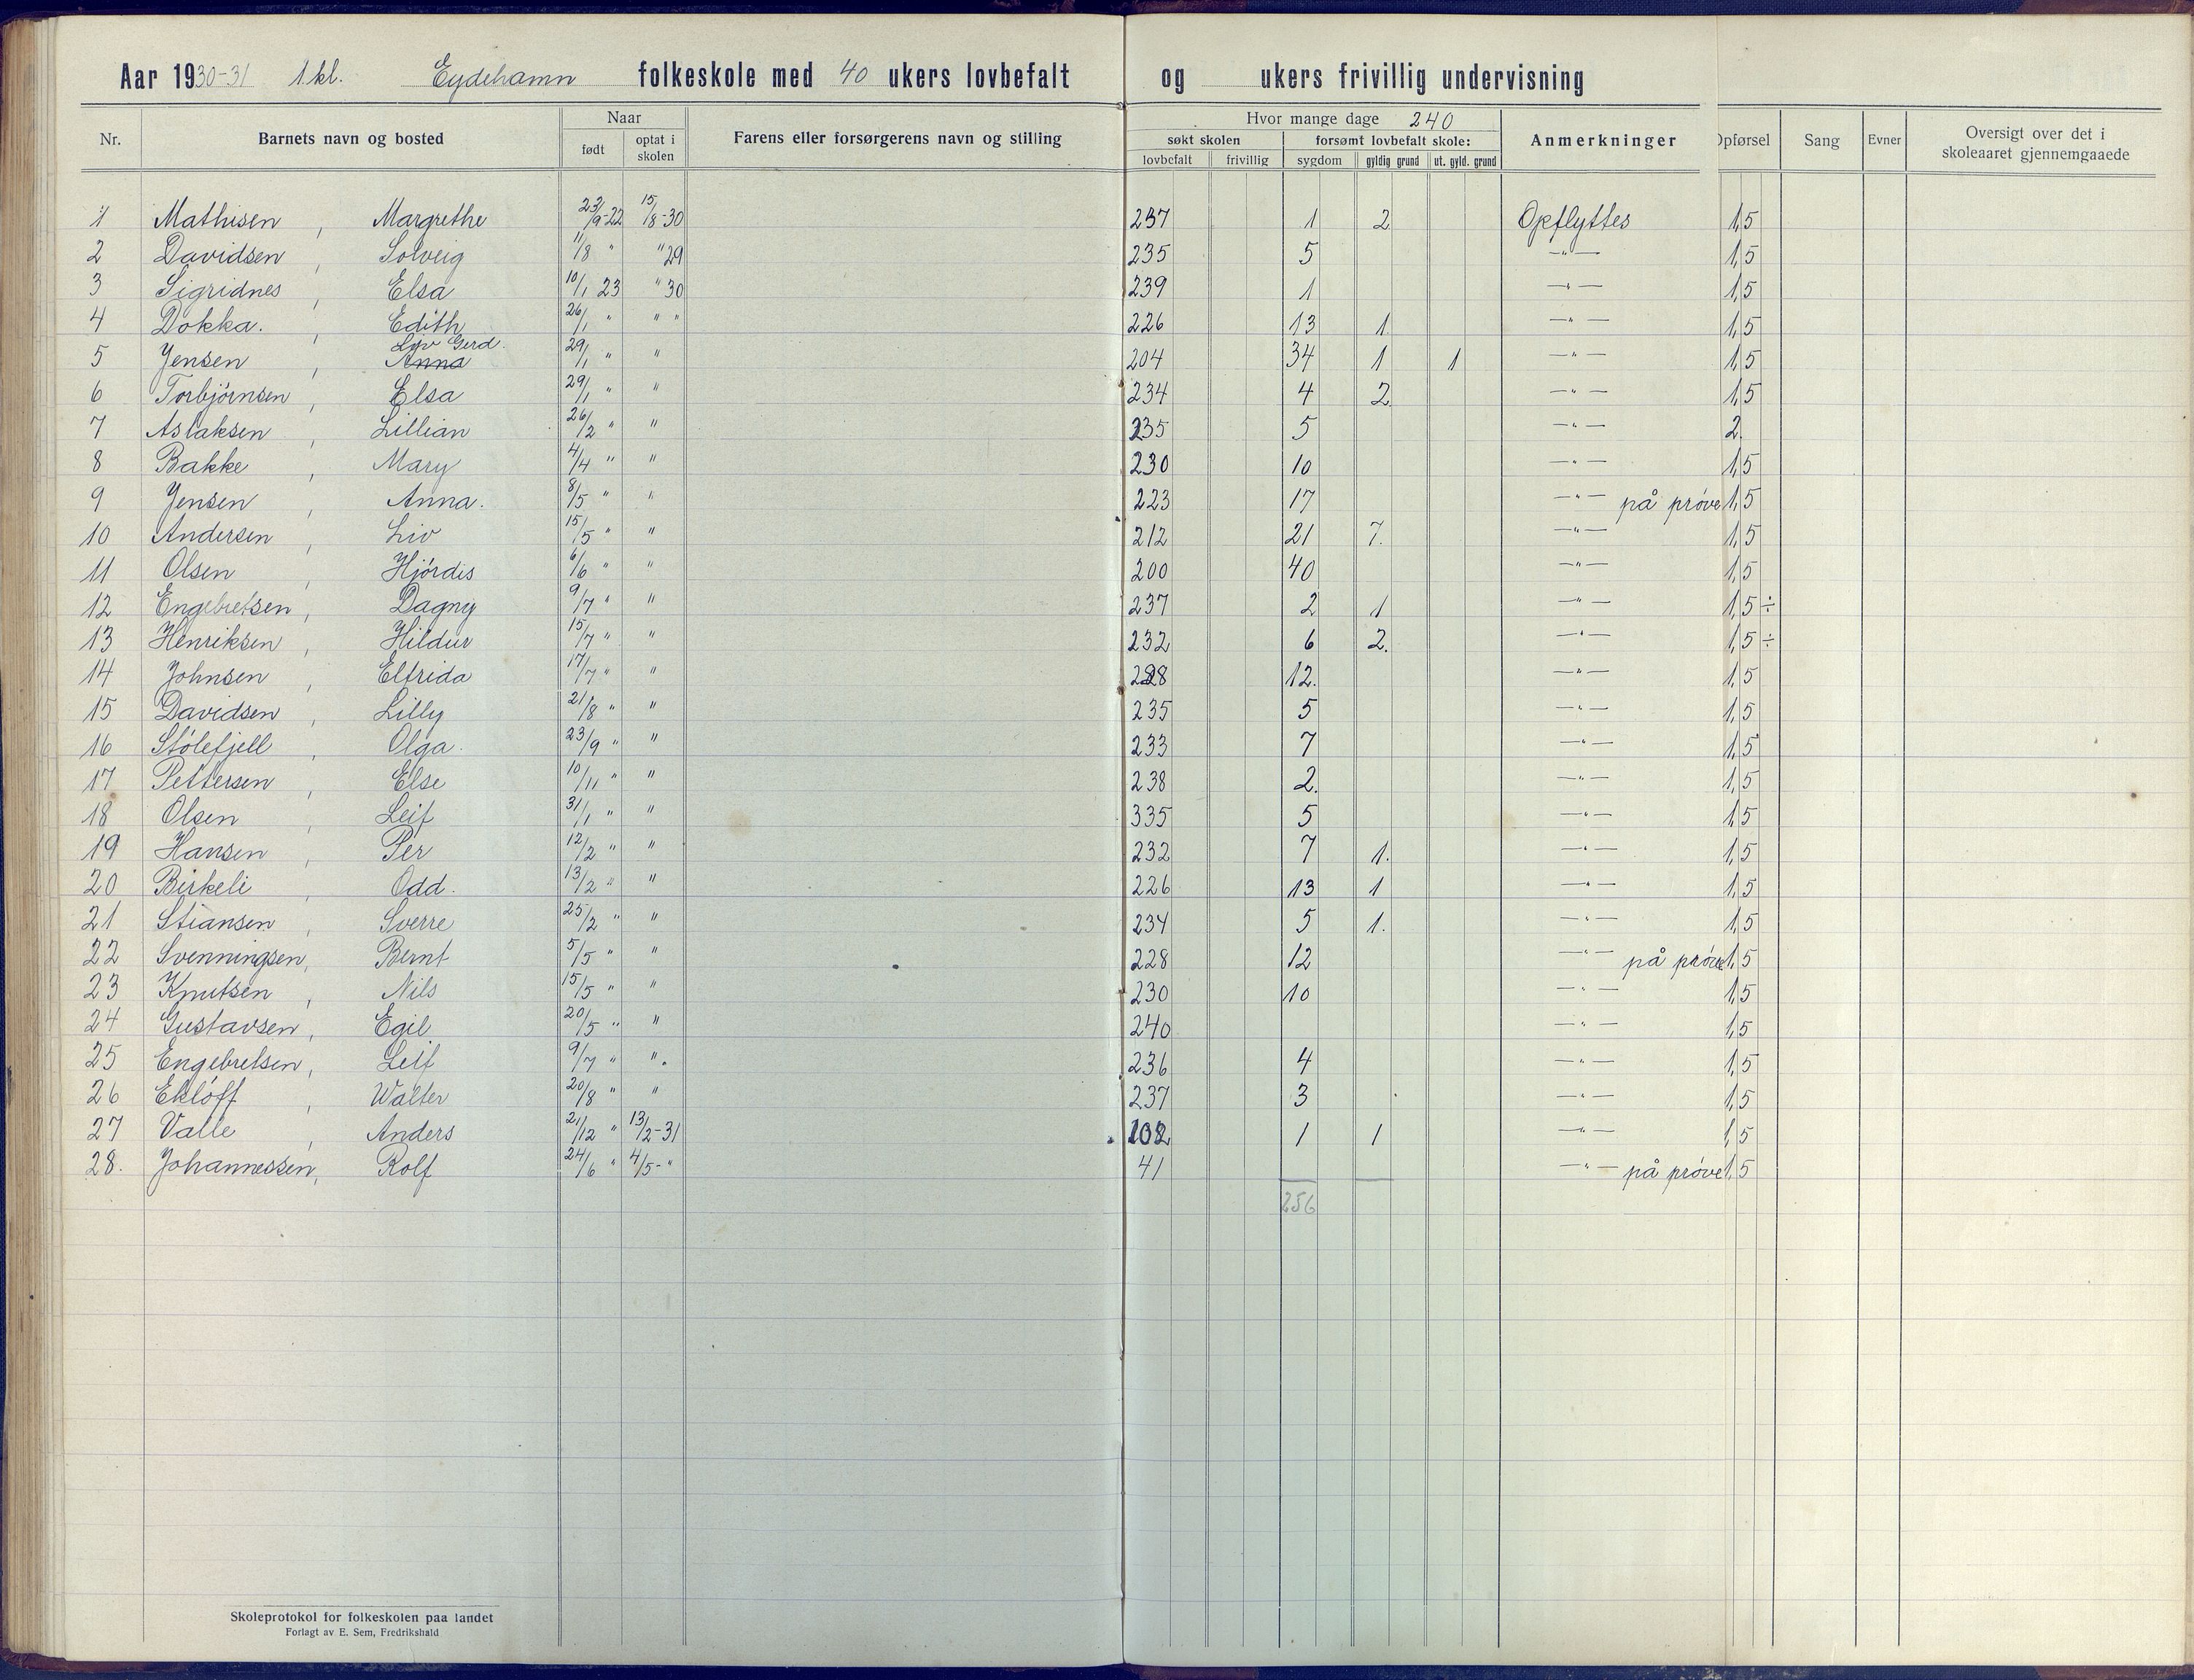 Aar 1930-31 1 kl. Eydehamn folkeskole med 40 ukers lovbefalt og ukers frivillig undervisning
Nr. Barnets navn og bosted Naar født optat i skolen Farens eller forsørgerens navn og stilling Hvor mange dage 240 søkt skolen lovbefalt frivillig forsømt lovbefalt skole: sygdom gyldig grund ut. gyld. grund Anmerkninger Opførsel Sang Evner Oversigt over det i skoleaaret gjennemgaaede
1 Mathisen, Margrethe 23/9-22 15/8-30 237 1 2 Opflyttes 1,5
2 Davidsen, Solveig 11/8 " " 29 235 5 —"— 1,5
3 Sigridnes, Elsa 10/1 23 " 30 239 1 —"— 1,5
4 Dokka., Edith 26/1 " " " 226 13 1 —"— 1,5
5 Jensen, Anna Liv Gerd. 29/1 " " 204 34 1 1 —"— 1,5
6 Torbjørnsen, Elsa 29/1 " " 234 4 2 —"— 1,5
7 Aslaksen, Lillian 26/2 " " 235 5 —"— 2.
8 Bakke, Mary 4/4 " " 230 10 —"— 1,5
9 Jensen, Anna. 8/5 " " 223 17 —"— på prøve 1,5
10 Andersen, Liv 15/5 " " 212 21 7. —"— 1,5
11 Olsen, Hjørdis 6/6 " " 200 40 —"— 1,5
12 Engebretsen, Dagny 9/7 " " 237 2 1 —"— 1,5 ÷
13 Henriksen, Hildur 15/7 " " 232 6 2. —"— 1,5 ÷
14 Johnsen, Elfrida 17/7 " " 228 12. —"— 1,5
15 Davidsen, Lilly 21/8 " " 235 5 —"— 1,5
16 Stølefjell, Olga. 23/9 " " 233 7 —"— 1,5
17 Pettersen, Else 10/11 " " 238 2. —"— 1,5
18 Olsen, Leif 31/1 " " 335 5 —"— 1,5
19 Hansen, Per 12/2 " " 232 7 1. —"— 1,5
20 Birkeli, Odd. 13/2 " " 226 13 1 —"— 1,5
21 Stiansen, Sverre 25/2 " " 234 5 1. —"— 1,5
22 Svenningsen, Bernt 5/5 " " 228 12 —"— på prøve 1,5
23 Knutsen, Nils 15/5 " " 230 10 —"— 1,5
24 Gustavsen, Egil 20/5 " " 240 —"— 1,5
25 Engebretsen, Leif 9/7 " ". 236 4 —"— 1,5
26 Ekløff, Walter 20/8 " " 237 3 —"— 1,5
27 Valle, Anders 21/12 " 13/2-31 102 1 1 —"— 1,5
28. Johannessen, Rolf 24/6 " 4/5-" 41 —"— på prøve 1,5
256
Skoleprotokol for folkeskolen paa landet
Forlagt av E. Sem, Fredrikshald